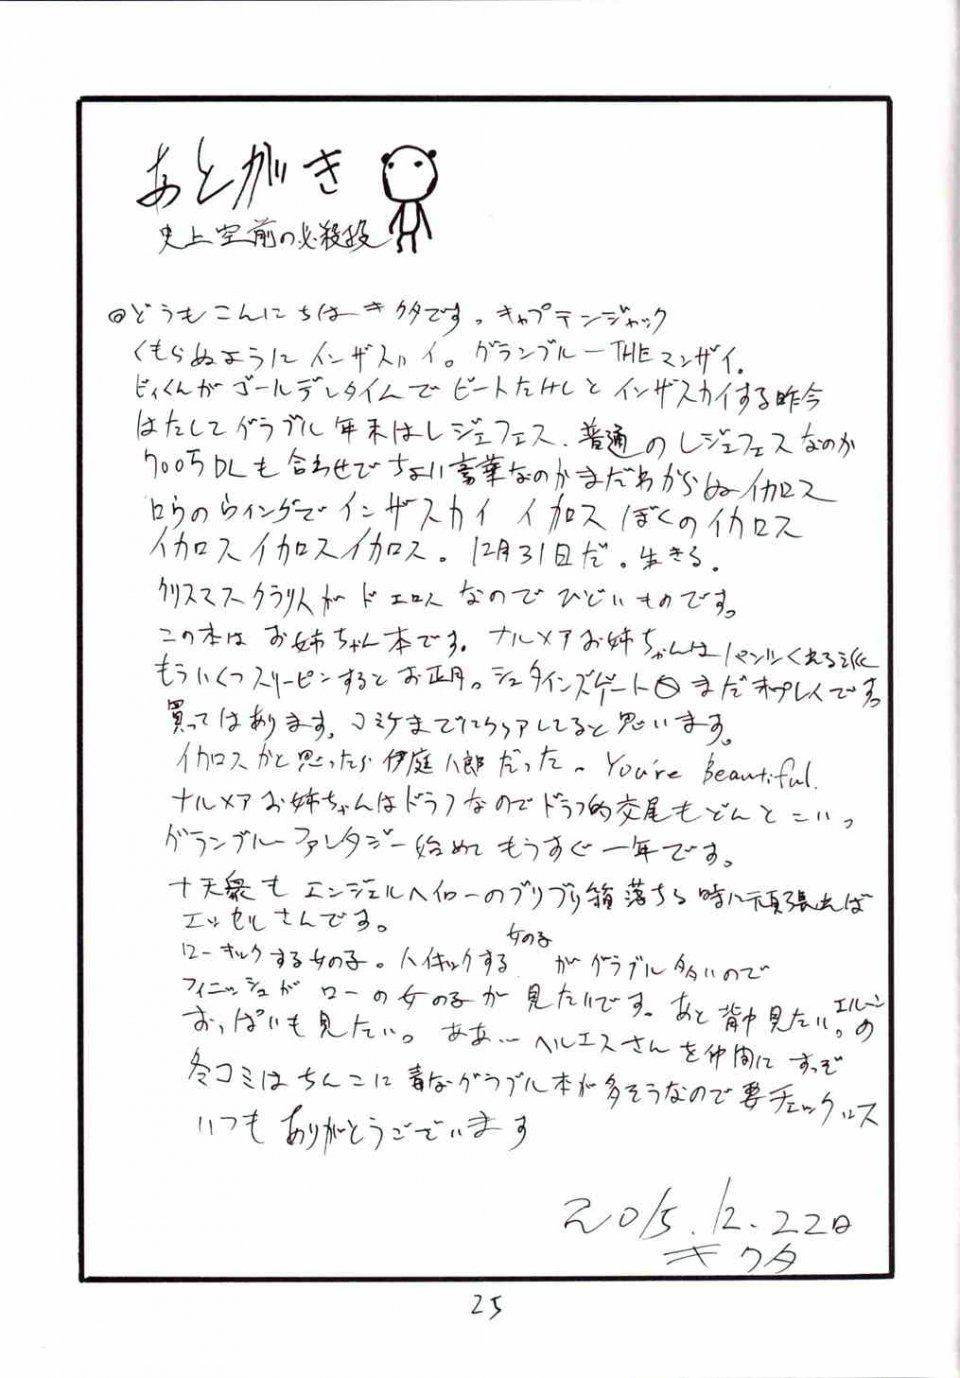 あとがき
史上空前の必殺技
@どうもこんにちは キクタです。キャプテンジャック
くもらぬように インザスカイ。グランブルーTHEマンザイ.
ビィくんがゴールデンタイムでビートたけしとインザスカイする昨今
はたしてグラブル年末はレジェフェス、普通のレジェフェスなのか
700万DLも合わせでちょい豪華なのかまだわからぬイカロス
ロウのウィングでインザスカイ イカロス ぼくのイカロス
イカロスイカロスイカロス。12月31日だ。生きる。
クリスマスクラリスがドエロスなのでひどいものです。
この本はお姉ちゃん本です。ナルメアお姉ちゃんはパンツくれる派
もういくつスリーピンするとお正月。シュタインズゲート0まだオプレイです。
買ってはあります。コミケまでにクリアしてると思います。
イカロスかと思ったら伊庭八郎だった〜 You're Beautiful.
ナルメアお姉ちゃんはドラフなのでドラフ的交尾もどんとこいっ
グランブルーファンタジー始めてもうすぐ一年です。
十天衆もエンジェルヘイローのブリブリ箱落ちる時に頑張れば
エッセルさんです。
ローキックする女の子。ハイキックする女の子がグラブル多いので
フィニッシュがローの女の子が見たいです。あと背中見たい。エルーンの
おっぱいも見たい。ああ… ヘルエスさんを仲間にすっぞ
冬コミはちんこに毒なグラブル本が多そうなので要チェックルス
いつもありがとうございます
2015.12.22日
キクタ
25